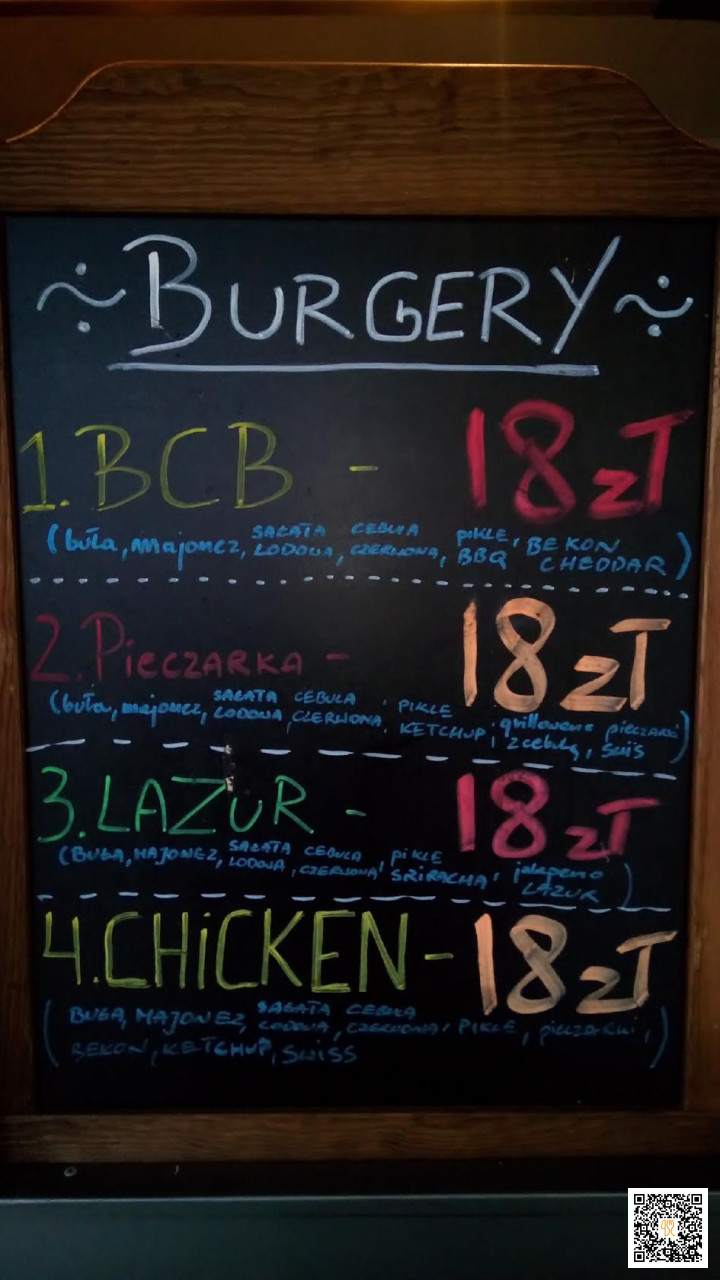 ~ BURGERY ~
1. BCB - 18 zł
(buła, majonez, SAŁATA LODOWA, CEBULA CZERWONA, PIKLE, BBQ BEKON CHEDDAR)
2. PIECZARKA - 18 zł
(buła, majonez, SAŁATA LODOWA, CEBULA CZERWONA, PIKLE, KETCHUP, grillowane pieczarki i z cebulą, SWIS)
3. LAZUR - 18 zł
(BUŁA, MAJONEZ, SAŁATA LODOWA, CEBULA CZERWONA, PIKLE, SRIRACHA, jalapeno LAZUR)
4. CHICKEN - 18 zł
(BUŁA, MAJONEZ, SAŁATA LODOWA, CEBULA CZERWONA, PIKLE, pieczarki,
BEKON, KETCHUP, SWISS)